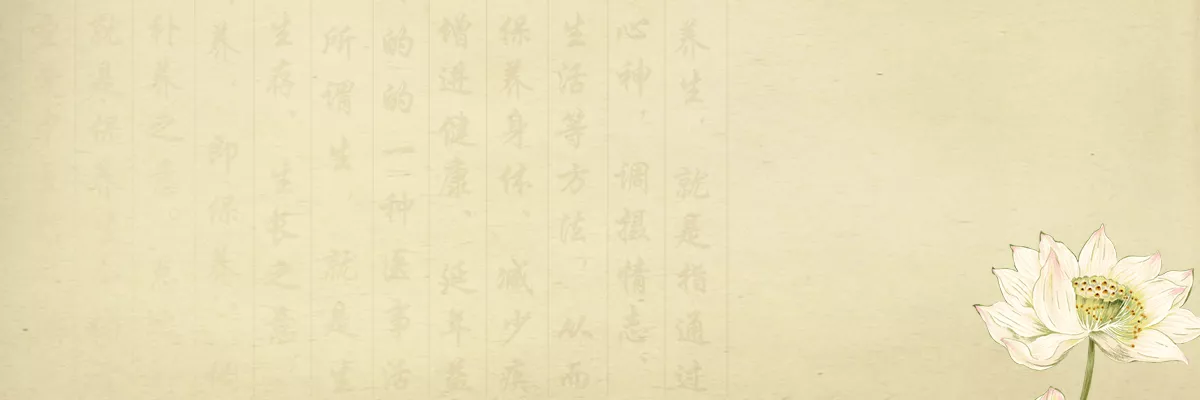 养生,就是指通过
心神,调摄情志、
生活等方法,从而
保养身体、减少疾
增进健康、延年益
的的一种医
所谓生,就是生
生存、生长之意
养,即保养
补养之
就是保养